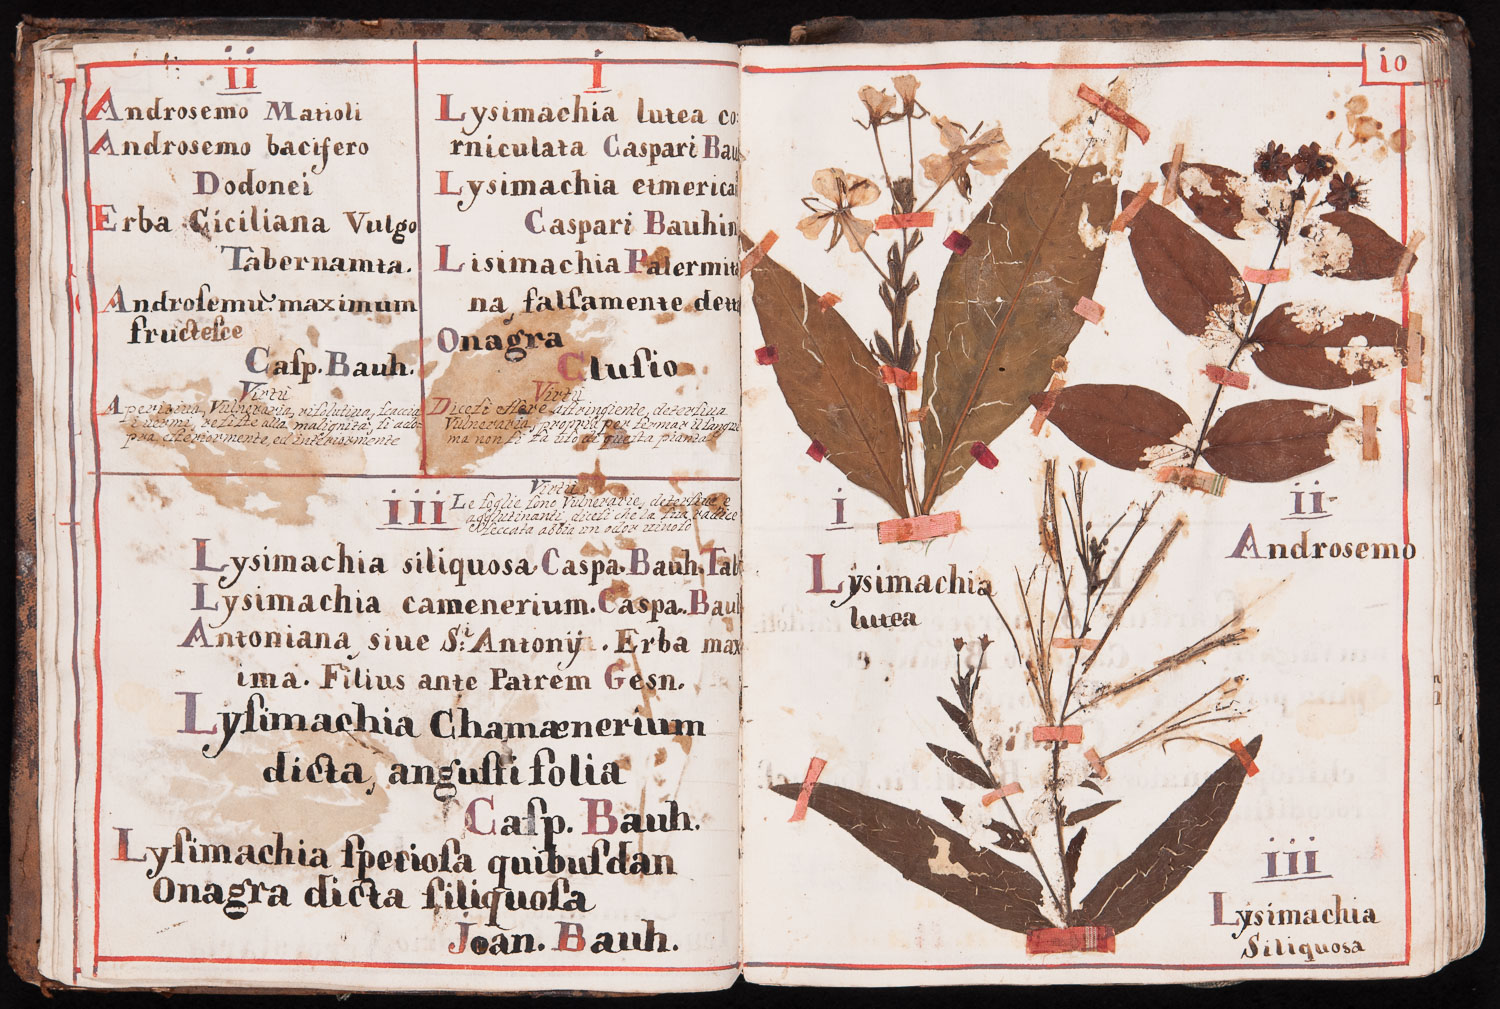 ii
Androsemo Matioli
Androsemo bacifero
Dodonei
Erba Ciciliana Vulgo
Tabernamta.
Androsemũ maximum
fructesce
Casp. Bauh.
Virtù
Aperitiua, Vulneraria, risolutiua, scaccia
i uermi, resiste alla malignità, si ado=
pra esteriormente, ed interiormente
i
Lysimachia lutea co=
rniculata Caspari Bau
Lysimachia etmerica
Caspari Bauhin
Lisimachia Palermita
na, falsamente detta
Onagra
Clusio
Virtù
Dicesi essere astringiente, detersiua
Vulneraria, propria per fermar il sangue
ma non si fa uso di questa pianta
iii
Virtù
Le foglie sono Vulnerarie, detersiue e
agglutinanti, dicesi che la sua radice
seccata abbia un odor uinoso
Lysimachia siliquosa Caspa. Bauh. Tab
Lysimachia camenerium. Caspa. Bauh
Antoniana, siue S.ti Antonij. Erba max
ima. Filius ante Patrem Gesn.
Lysimachia Chamænerium
dicta, angustifolia
Casp. Bauh.
Lysimachia speciosa quibusdan
Onagra dicta siliquosa
Joan. Bauh.
io
i
Lysimachia
lutea
ii
Androsemo
iii
Lysimachia
Siliquosa